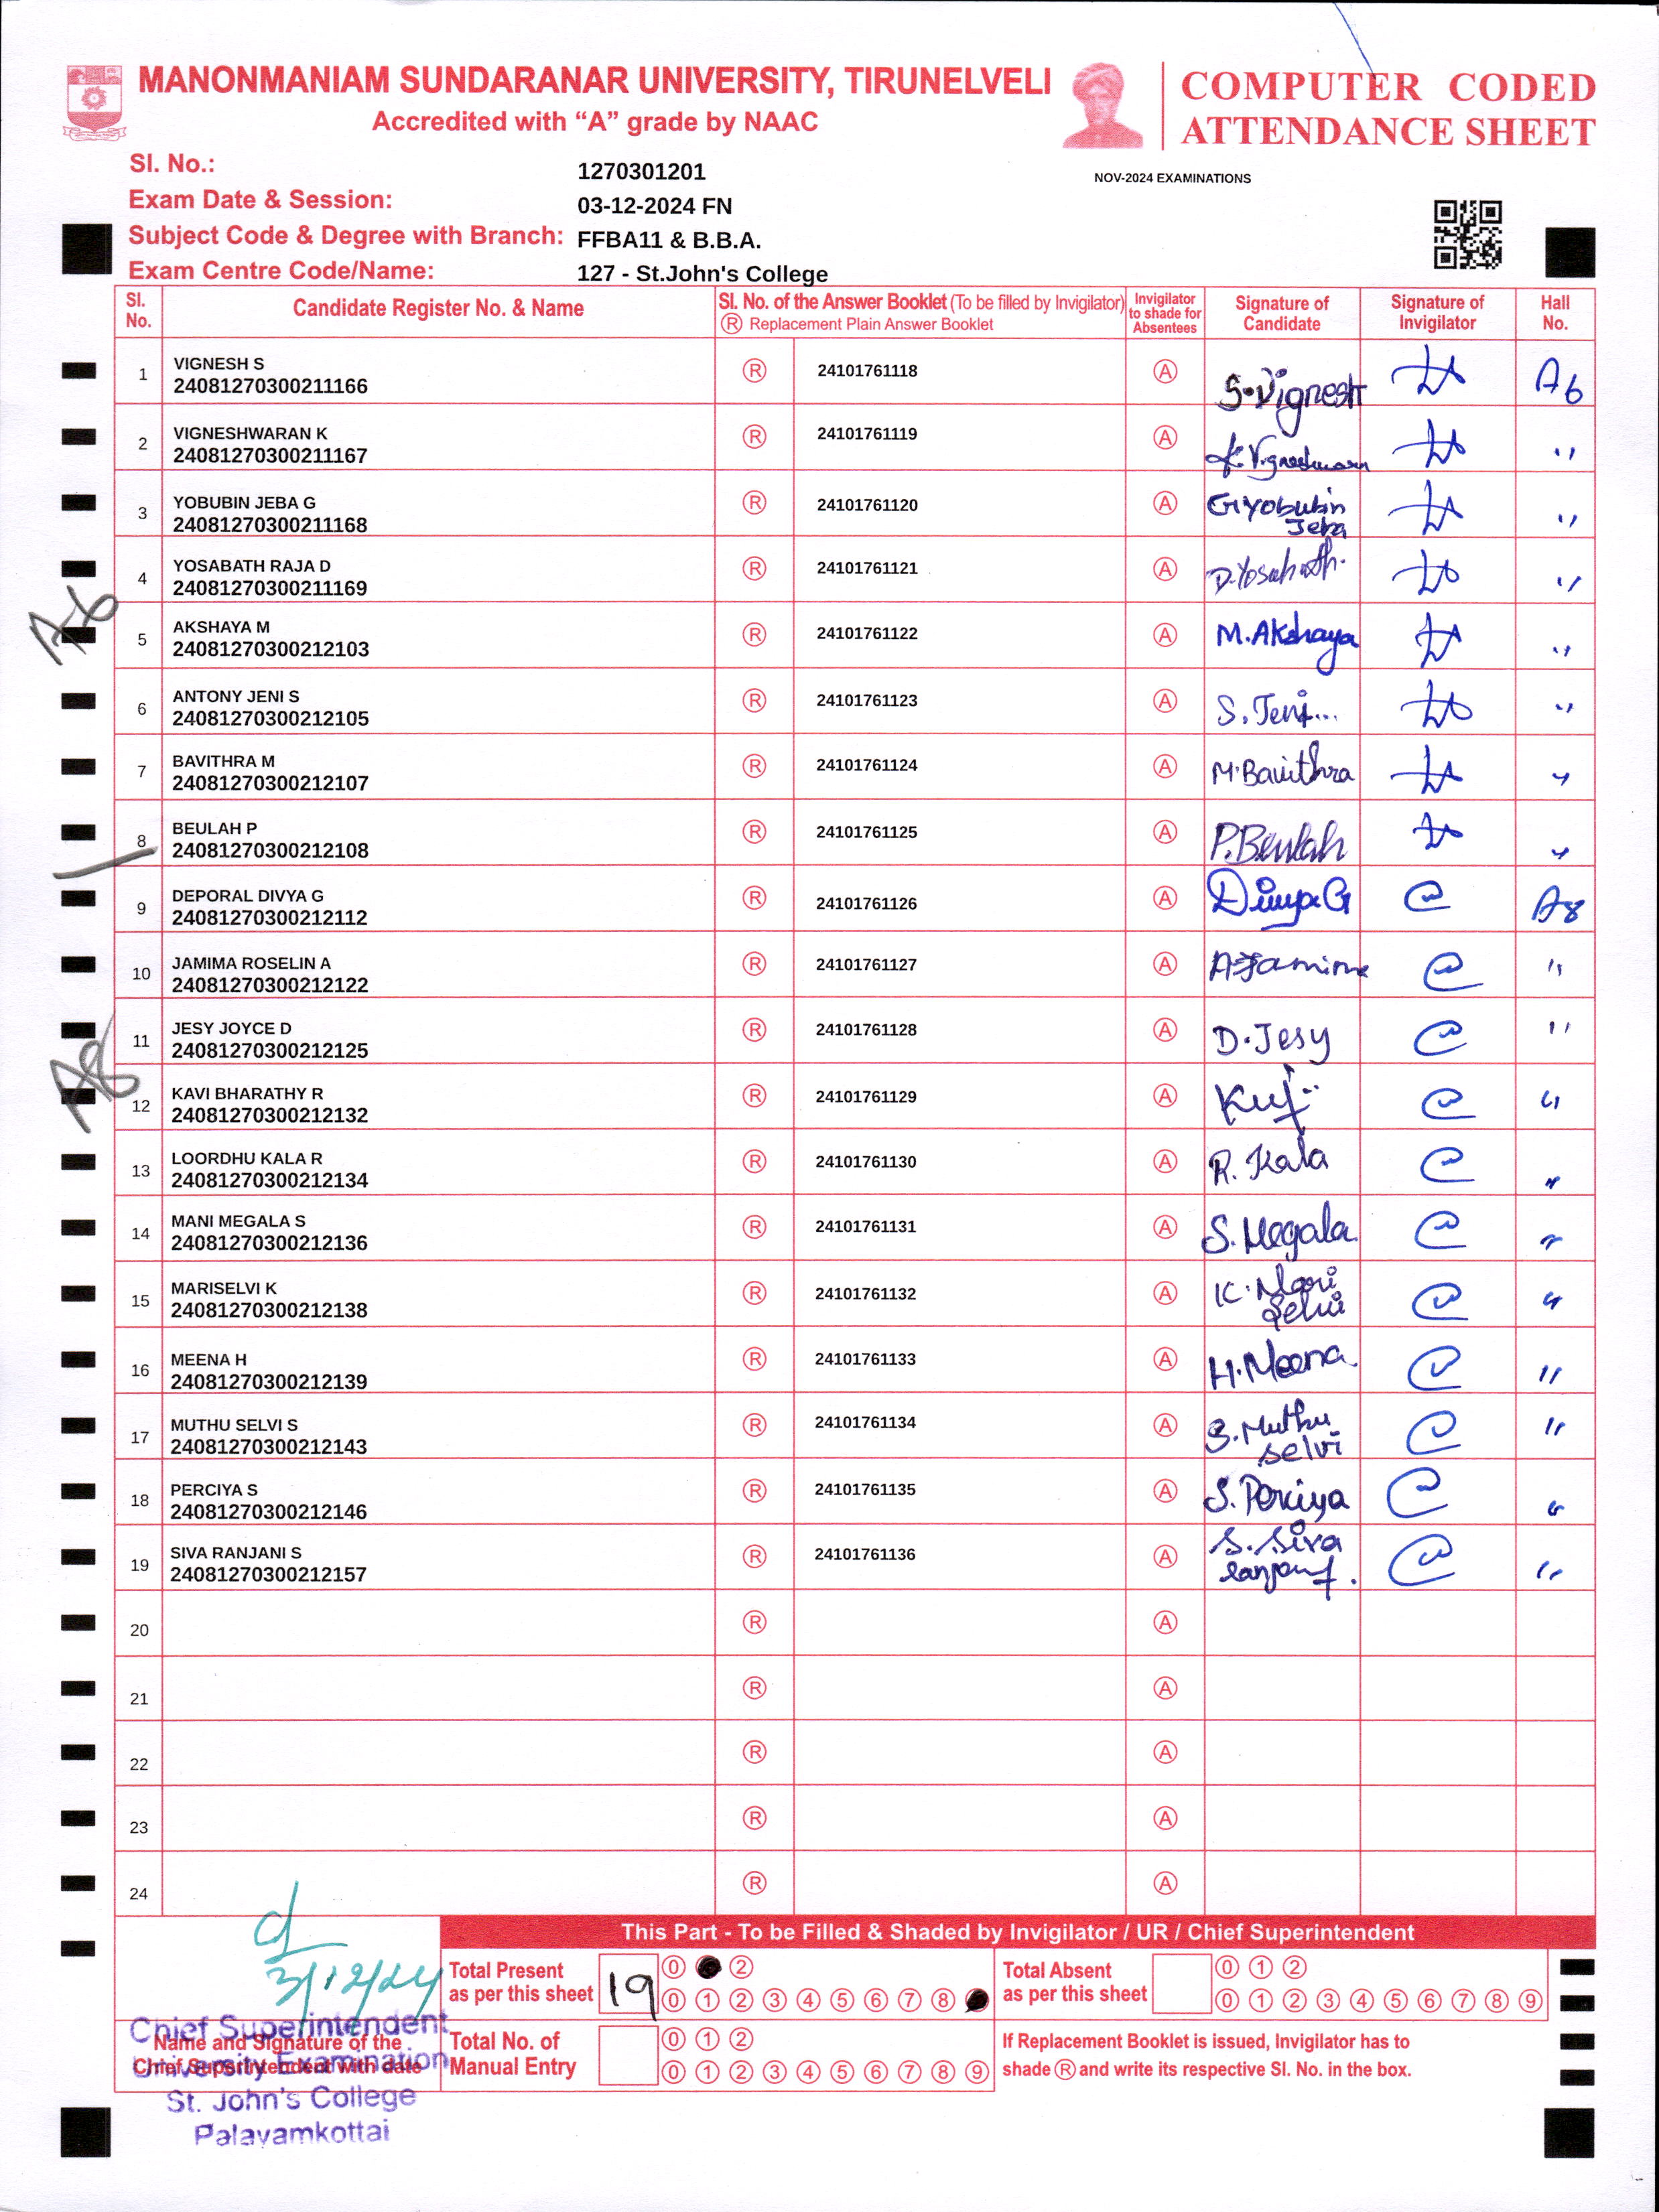 MANONMANIAM SUNDARANAR UNIVERSITY, TIRUNELVELI
Accredited with “A” grade by NAAC
COMPUTER CODED
ATTENDANCE SHEET
Sl. No.: 1270301201
NOV-2024 EXAMINATIONS
Exam Date & Session: 03-12-2024 FN
Subject Code & Degree with Branch: FFBA11 & B.B.A.
Exam Centre Code/Name: 127 - St.John's College
Sl. No. Candidate Register No. & Name Sl. No. of the Answer Booklet (To be filled by Invigilator) Ⓡ Replacement Plain Answer Booklet Invigilator to shade for Absentees Signature of Candidate Signature of Invigilator Hall No.
1 VIGNESH S 24081270300211166 Ⓡ 24101761118 Ⓐ S.Vignesh A6
2 VIGNESHWARAN K 24081270300211167 Ⓡ 24101761119 Ⓐ K.Vigneshwaran "
3 YOBUBIN JEBA G 24081270300211168 Ⓡ 24101761120 Ⓐ G.Yobubin Jeba "
4 YOSABATH RAJA D 24081270300211169 Ⓡ 24101761121 Ⓐ D.Yosabath. "
A6
5 AKSHAYA M 24081270300212103 Ⓡ 24101761122 Ⓐ M.Akshaya "
6 ANTONY JENI S 24081270300212105 Ⓡ 24101761123 Ⓐ S.Jeni... "
7 BAVITHRA M 24081270300212107 Ⓡ 24101761124 Ⓐ M.Bavithra "
8 BEULAH P 24081270300212108 Ⓡ 24101761125 Ⓐ P.Beulah "
9 DEPORAL DIVYA G 24081270300212112 Ⓡ 24101761126 Ⓐ Divya.G A8
10 JAMIMA ROSELIN A 24081270300212122 Ⓡ 24101761127 Ⓐ A.Jamima "
11 JESY JOYCE D 24081270300212125 Ⓡ 24101761128 Ⓐ D.Jesy "
A8
12 KAVI BHARATHY R 24081270300212132 Ⓡ 24101761129 Ⓐ "
13 LOORDHU KALA R 24081270300212134 Ⓡ 24101761130 Ⓐ R.Kala "
14 MANI MEGALA S 24081270300212136 Ⓡ 24101761131 Ⓐ S.Megala "
15 MARISELVI K 24081270300212138 Ⓡ 24101761132 Ⓐ K.Mari Selvi "
16 MEENA H 24081270300212139 Ⓡ 24101761133 Ⓐ H.Meena "
17 MUTHU SELVI S 24081270300212143 Ⓡ 24101761134 Ⓐ S.Muthu selvi "
18 PERCIYA S 24081270300212146 Ⓡ 24101761135 Ⓐ S.Perciya "
19 SIVA RANJANI S 24081270300212157 Ⓡ 24101761136 Ⓐ S.Siva ranjani. "
20 Ⓡ Ⓐ
21 Ⓡ Ⓐ
22 Ⓡ Ⓐ
23 Ⓡ Ⓐ
24 Ⓡ Ⓐ
This Part - To be Filled & Shaded by Invigilator / UR / Chief Superintendent
3/12/24
Total Present as per this sheet 19 0 2
0 1 2 3 4 5 6 7 8
Total Absent as per this sheet 0 1 2
0 1 2 3 4 5 6 7 8 9
Name and Signature of the Chief Superintendent with date
Total No. of Manual Entry 0 1 2
0 1 2 3 4 5 6 7 8 9
If Replacement Booklet is issued, Invigilator has to
shade Ⓡ and write its respective Sl. No. in the box.
Chief Superintendent
University Examination
St. John's College
Palayamkottai